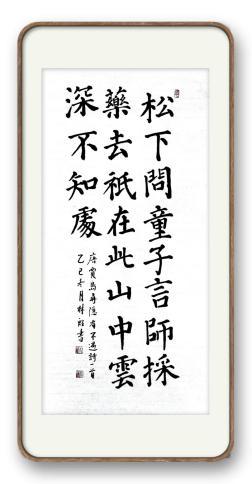 松下問童子言師採
藥去祇在此山中雲
深不知處
唐賈島尋隱者不遇詩一首
乙巳冬月林